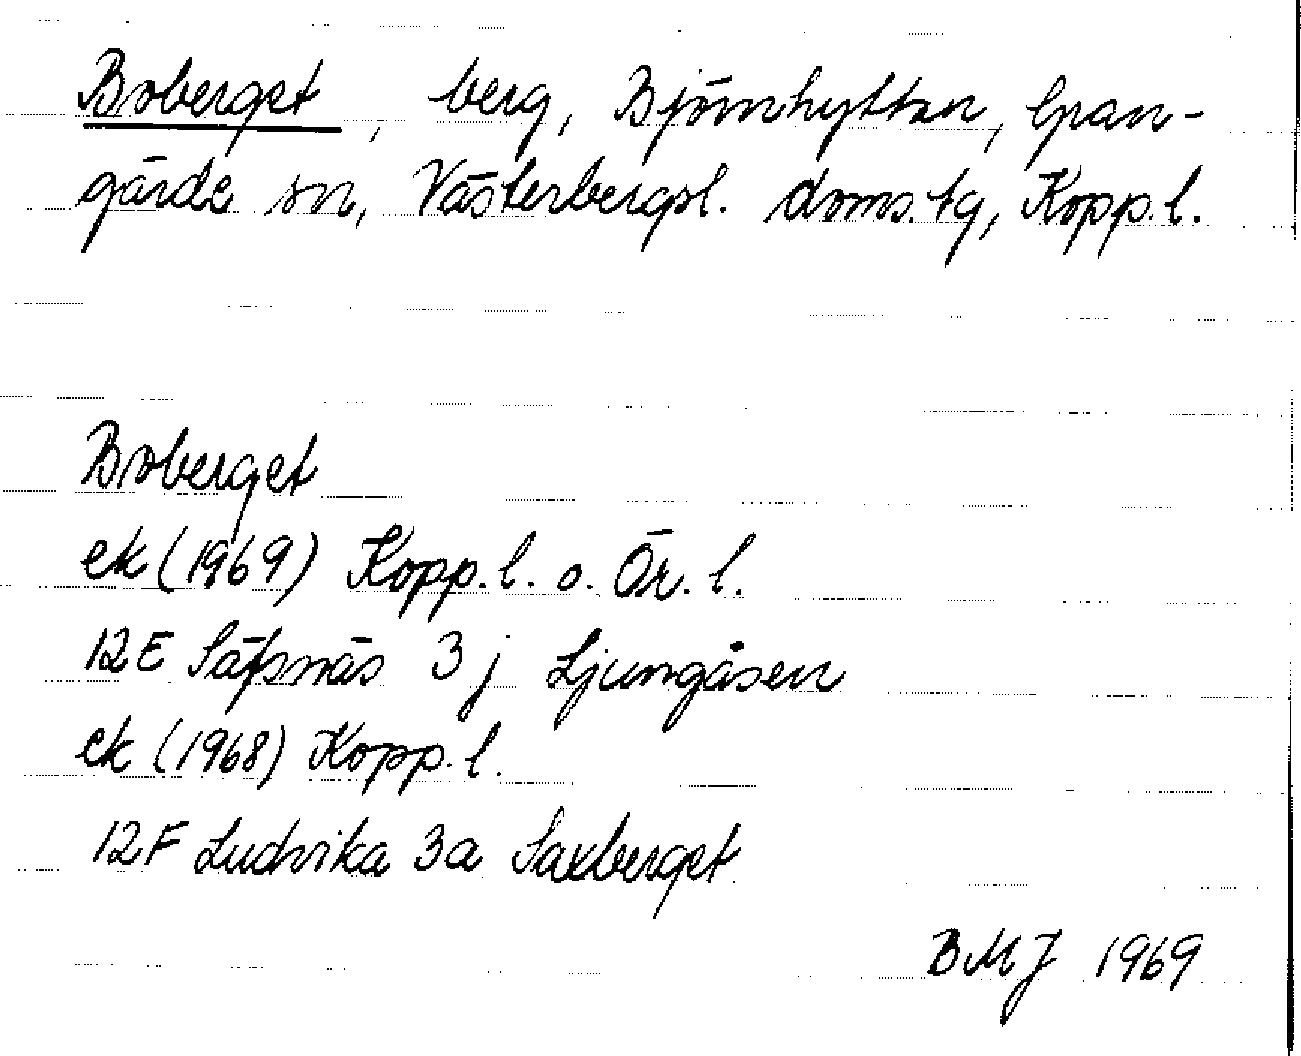 Boberget, berg, Björnhyttan, Gran-
gärde sn, Västerbergsl. doms. tg, Kopp. l.
Boberget
ek (1969) Kopp. l. o. Ör. l.
12E Säfsnäs 3j Ljungåsen
ek (1968) Kopp. l.
12F Ludvika 3a Saxberget
BMJ 1969